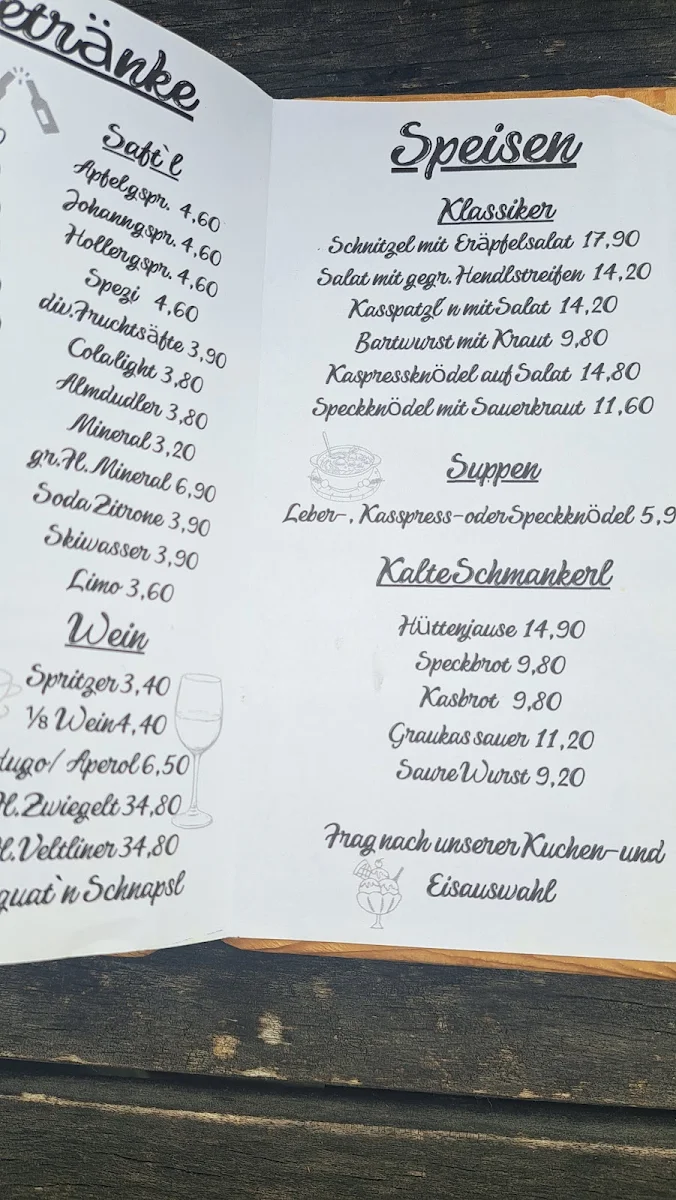 etränke
Saft`l
Apfelgspr. 4,60
Johanngspr. 4,60
Hollergspr. 4,60
Spezi 4,60
div. Fruchtsäfte 3,90
Cola light 3,80
Almdudler 3,80
Mineral 3,20
gr. Fl. Mineral 6,90
Soda Zitrone 3,90
Skiwasser 3,90
Limo 3,60
Wein
Spritzer 3,40
1/8 Wein 4,40
Hugo/ Aperol 6,50
Fl. Zwiegelt 34,80
Fl. Veltliner 34,80
guat`n Schnapsl
Speisen
Klassiker
Schnitzel mit Eräpfelsalat 17,90
Salat mit gegr. Hendlstreifen 14,20
Kasspatzl´n mit Salat 14,20
Bartwurst mit Kraut 9,80
Kaspressknödel auf Salat 14,80
Speckknödel mit Sauerkraut 11,60
Suppen
Leber-, Kasspress- oder Speckknödel 5,9
Kalte Schmankerl
Hüttenjause 14,90
Speckbrot 9,80
Kasbrot 9,80
Graukas sauer 11,20
Saure Wurst 9,20
Frag nach unserer Kuchen- und
Eisauswahl